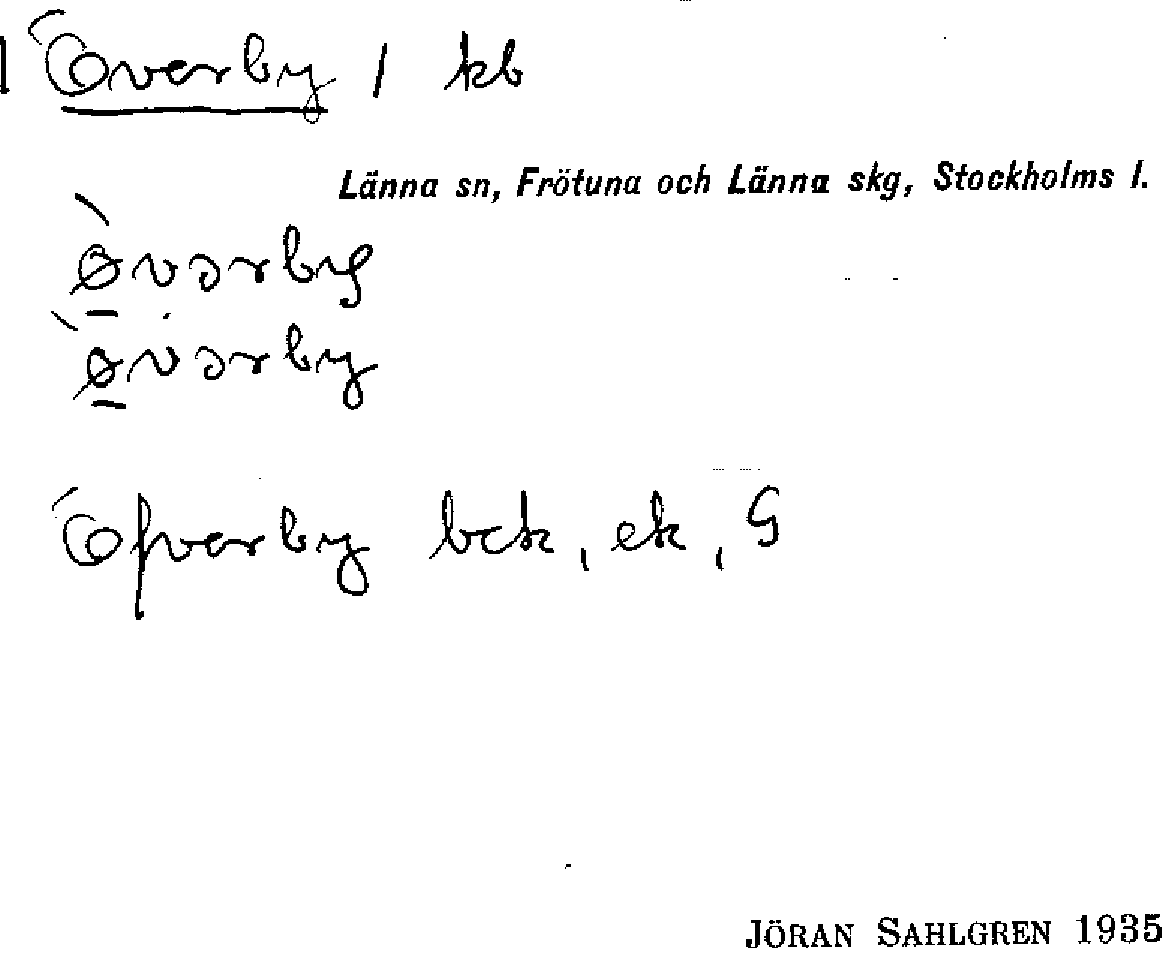 Överby / kb
Länna sn, Frötuna och Länna skg, Stockholms l.
øvərby
øvərby
Öfverby bck, ek, G
JÖRAN SAHLGREN 1935